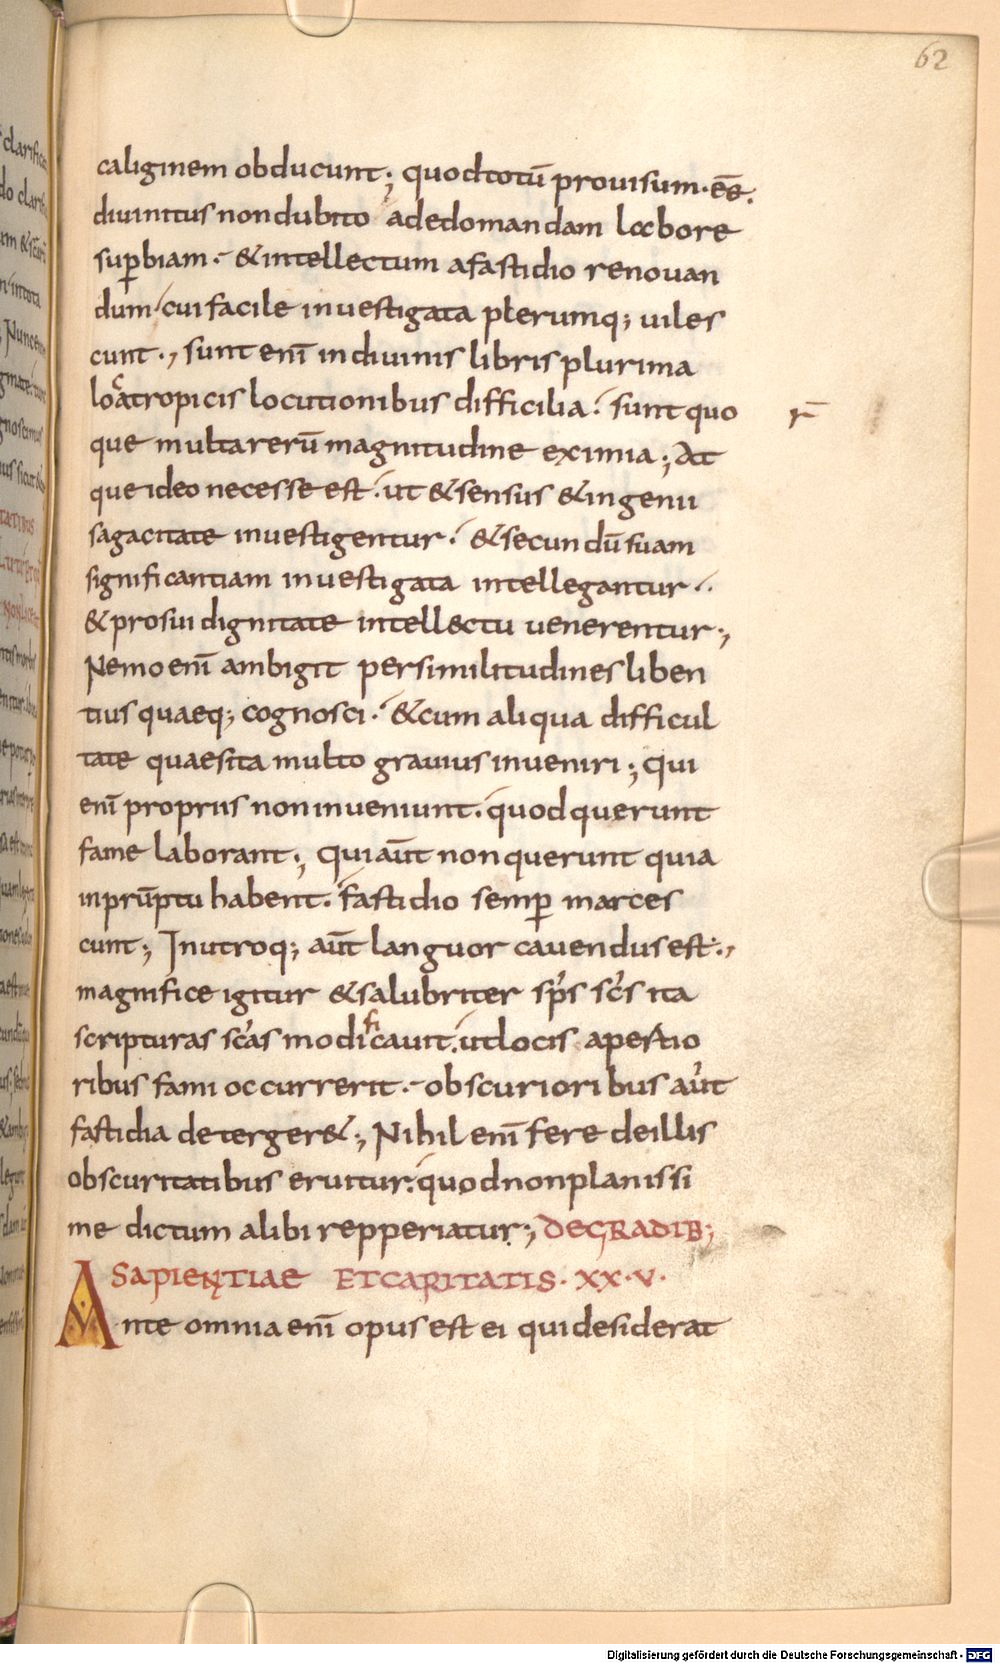 62
caliginem obducunt; quod totū prouisum·eē.
diuinitus non dubito ad edomandam labore
suꝑbiam·- & intellectum a fastidio renouan
dum· cui facile inuestigata plerumq; uiles
cunt·, sunt enī in diuinis libris plurima
locatropicis locutionibus difficilia· sunt quo
r̄
que multa rerū magnitudine eximia; At
que ideo necesse est· ut & sensus & ingenii
sagacitate inuestigentur· & secundū suam
significantiam inuestigata intellegantur··
& pro sui dignitate intell&ctu uenerentur;,
Nemo enī ambigit per similitudines liben
tius quaeq; cognosci· & cum aliqua difficul
tate quaesita multo grauius inueniri; Qui
enī proprius non inueniunt· quod querunt
fame laborant; Qui aūt non querunt quia
inprūptu habent· fastidio semꝑ marces
cunt; In utroq; aūt languor cauendus est·,
magnifice igitur & salubriter sp̄s sc̄s ita
scripturas sc̄as modificauit· ut locis apertio
ribus fami occurrerit·- obscurioribus aūt
fastidia deterger&; Nihil enī fere de illis
obscuritatibus eruitur· quod non planissi
me dictum alibi repperiatur; DE GRADIB;
SAPIENTIAE ET CARITATIS· XX·V·
Ante omnia enī opus est ei qui desiderat
Digitalisierung gefördert durch die Deutsche Forschungsgemeinschaft - DFG